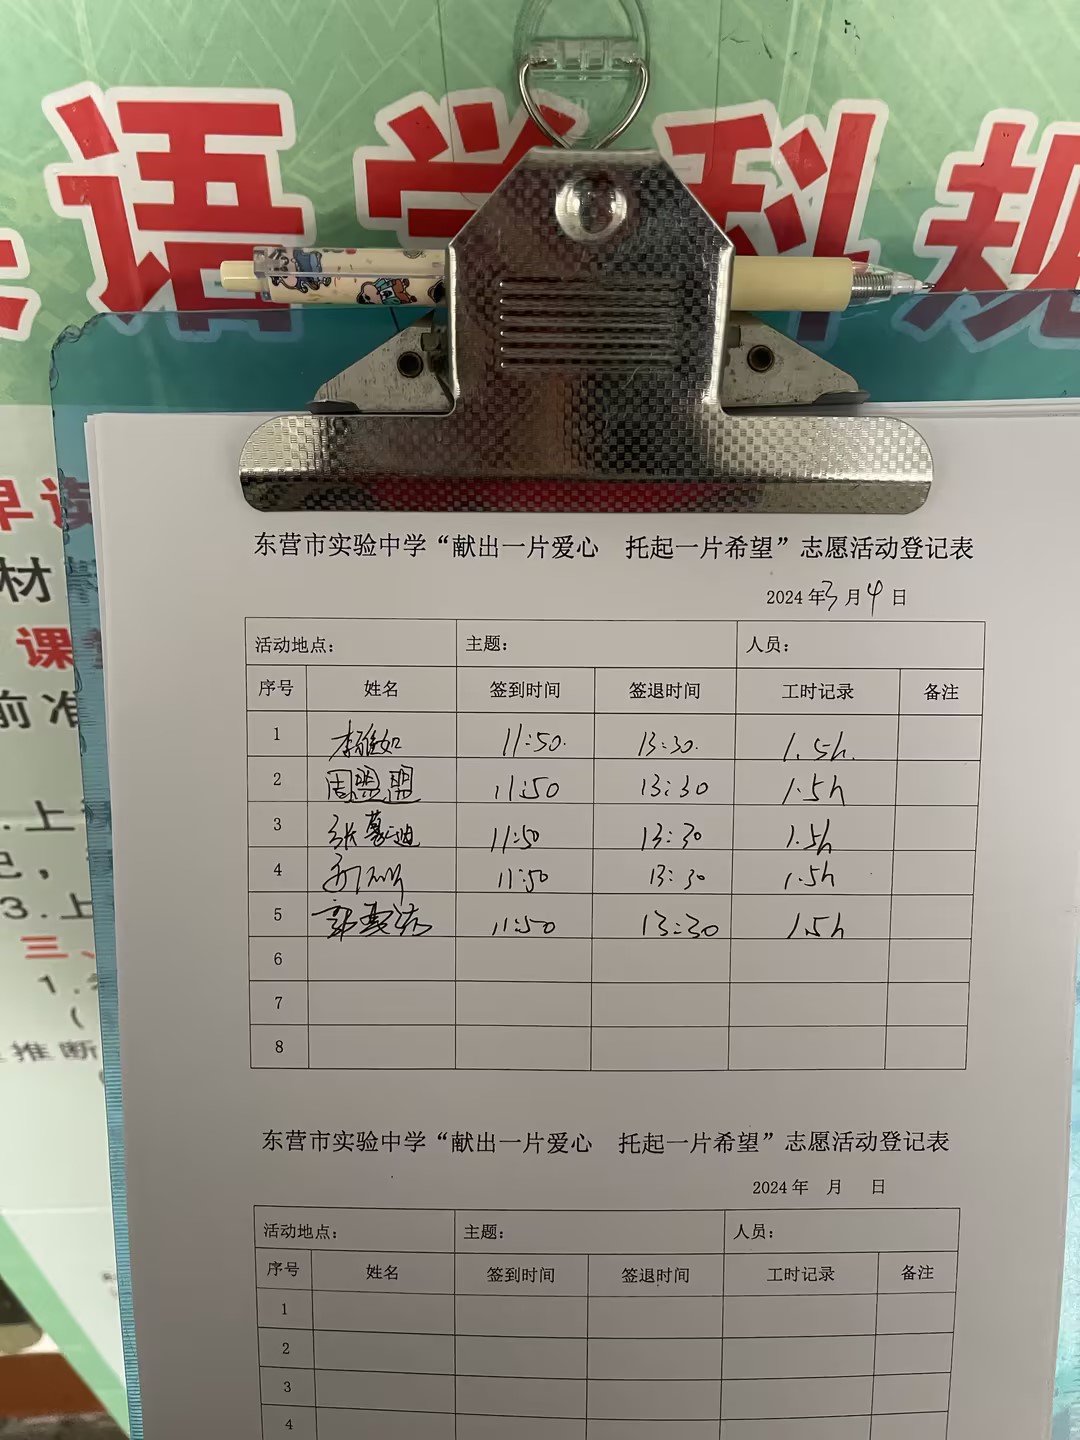 语学科规
早读
材
课堂
前准
.上
3.上
三、
1.
(
推断
东营市实验中学“献出一片爱心 托起一片希望”志愿活动登记表
2024年3月4日
活动地点： 主题： 人员：
序号 姓名 签到时间 签退时间 工时记录 备注
1 李雅如 11:50. 13:30. 1.5h.
2 周盟盟 11:50 13:30 1.5h
3 张蔓迪 11:50 13:30 1.5h
4 11:50 13:30 1.5h
5 11:50 13:30 1.5h
6
7
8
东营市实验中学“献出一片爱心 托起一片希望”志愿活动登记表
2024年 月 日
活动地点： 主题： 人员：
序号 姓名 签到时间 签退时间 工时记录 备注
1
2
3
4